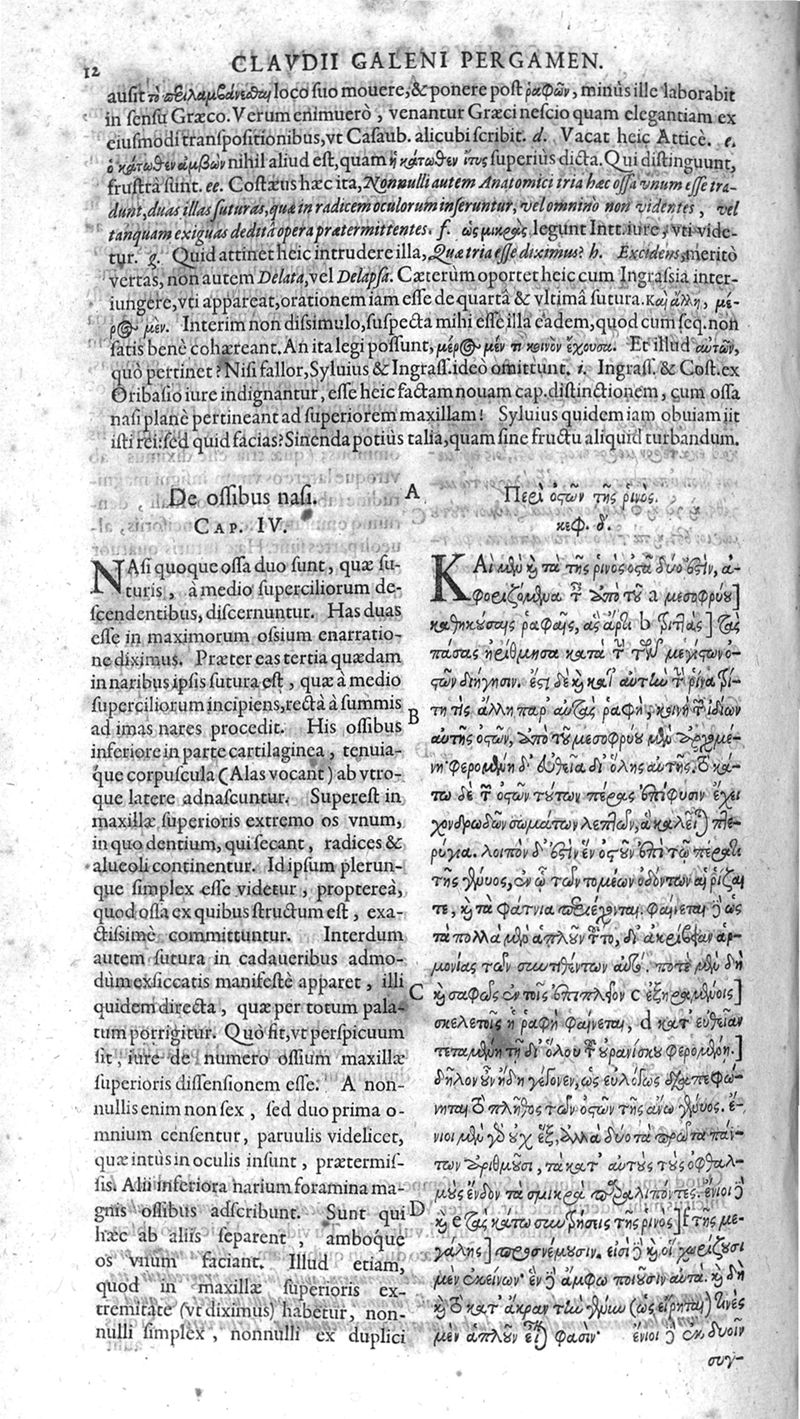 12
CLAVDII GALENI PERGAMEN.
ausit loco suo mouere, & ponere post ῥαφῶν, minùs ille laborabit
in sensu Græco. Verum enimuerò, venantur Græci nescio quam elegantiam ex
eiusmodi transpositionibus, vt Casaub. alicubi scribit. d. Vacat heic Atticè. e.
ὁ κάτωθεν nihil aliud est, quam ἡ κάτωθεν ἴτυς superius dicta. Qui distinguunt,
frustrà sunt. ee. Costæus hæc ita, Nonnulli autem Anatomici tria hæc ossa vnum esse tra-
dunt, duas illas suturas, quæ in radicem oculorum inseruntur, vel omnino non videntes, vel
tanquam exiguas deditâ opera prætermittentes. f. ὡς μικρὰς legunt Intt. iure, vti vide-
tur. g. Quid attinet heic intrudere illa, Quæ tria esse diximus? h. Excidens, meritò
vertas, non autem Delata, vel Delapsa. Cæterùm oportet heic cum Ingrassia inter-
iungere, vti appareat, orationem iam esse de quartâ & vltimâ sutura. Καὶ ἄλλη, μέ-
ρος μὲν. Interim non dissimulo, suspecta mihi esse illa eadem, quod cum seq. non
satis benè cohæreant. An ita legi possunt, μέρος μέν τι κοινὸν ἔχουσα. Et illud αὐτῶν,
quò pertinet? Nisi fallor, Syluius & Ingrass. ideò omittunt. i. Ingrass. & Cost. ex
Oribasio iure indignantur, esse heic factam nouam cap. distinctionem, cum ossa
nasi planè pertineant ad superiorem maxillam! Syluius quidem iam obuiam iit
isti rei: sed quid facias? Sinenda potiùs talia, quam sine fructu aliquid turbandum.
De ossibus nasi.
CAP. IV.
NAsi quoque ossa duo sunt, quæ su-
turis, à medio superciliorum de-
scendentibus, discernuntur. Has duas
esse in maximorum ossium enarratio-
ne diximus. Præter eas tertia quædam
in naribus ipsis sutura est, quæ à medio
superciliorum incipiens, rectà à summis
ad imas nares procedit. His ossibus
inferiore in parte cartilaginea, tenuia-
que corpuscula (Alas vocant) ab vtro-
que latere adnascuntur. Superest in
maxillæ superioris extremo os vnum,
in quo dentium, qui secant, radices &
alueoli continentur. Id ipsum plerun-
que simplex esse videtur, proptereà,
quod ossa ex quibus structum est, exa-
ctissimè committuntur. Interdum
autem sutura in cadaueribus admo-
dùm exsiccatis manifestè apparet, illi
quidem directa, quæ per totum pala-
tum porrigitur. Quò fit, vt perspicuum
sit, iure de numero ossium maxillæ
superioris dissensionem esse. A non-
nullis enim non sex, sed duo prima o-
mnium censentur, paruulis videlicet,
quæ intùs in oculis insunt, prætermis-
sis. Alii inferiora narium foramina ma-
gnis ossibus adscribunt. Sunt qui
hæc ab aliis separent, amboque
os vnum faciant. Illud etiam,
quod in maxillæ superioris ex-
tremitate (vt diximus) habetur, non-
nulli simplex, nonnulli ex duplici
A
B
C
D
Περὶ ὀστῶν τῆς ῥινός.
κεφ. δ.
ΚΑὶ μὲν καὶ τὰ τῆς ῥινὸς ὀστᾶ δύο ἐστὶν, ἀ-
φοριζόμενα τε ἀπὸ τοῦ a μεσοφρύου]
καθηκούσαις ῥαφαῖς, ἃς ἄρτι b διττὰς] ταῖς
πάσας ἠρίθμησα κατὰ τὴν τῶν μεγίστων ὀ-
στῶν διήγησιν. ἔστι δὲ καὶ κατ' αὐτὴν τὴν ῥῖνα τρί-
τη τὶς ἄλλη παρ' αὐτὰς ῥαφὴ, κοινὴ τῶν ἰδίων
αὐτῆς ὀστῶν, ἀπὸ τοῦ μεσοφρύου μὲν ἀρχομέ-
νη, φερομένη δ' εὐθεῖα δι' ὅλης αὐτῆς. τὸ κά-
τω δὲ τῶν ὀστῶν τούτων πέρας ἐπίφυσιν ἔχει
χονδρωδῶν σωμάτων λεπτῶν, ἃ καλεῖται πτε-
ρύγια. λοιπὸν δ' ἐστὶν ἓν ὀστοῦν ἐπὶ τῷ πέρατι
τῆς γένυος, ἐν ᾧ τῶν τομέων ὀδόντων αἱ ῥίζαι
τε, καὶ τὰ φάτνια περιέχονται. φαίνεται δὲ ὡς
τὰ πολλὰ μὲν ἁπλοῦν τοῦτο, δι' ἀκρίβειαν ἁρ-
μονίας τῶν συντιθέντων αὐτό. ποτὲ μὲν δὴ
καὶ σαφῶς ἐν τοῖς ἐπιπλέον c ἐξηραμμένοις]
σκελετοῖς ἡ ῥαφὴ φαίνεται, d κατ' εὐθεῖαν
τεταμένη τῇ δι' ὅλου τοῦ οὐρανίσκου φερομένῃ.]
δῆλον οὖν ἤδη γέγονεν, ὡς εὐλόγως διαπεφώ-
νηται τὸ πλῆθος τῶν ὀστῶν τῆς ἄνω γένυος. ἔ-
νιοι μὲν γὰρ οὐχ ἓξ, ἀλλὰ δύο τὰ πρῶτα πάν-
των ἀριθμοῦσι, τὰ κατ' αὐτοὺς τοὺς ὀφθαλ-
μοὺς ἔνδον τὰ σμικρὰ παραλιπόντες. ἔνιοι δὲ
καὶ e τὰς κάτω συντρήσεις τῆς ῥινὸς] f τῆς με-
γάλης] προσνέμουσιν. εἰσὶ δὲ καὶ οἳ χωρίζουσι
μὲν ἐκείνων· ἓν δὲ ἄμφω ποιοῦσιν αὐτά. καὶ δὴ
καὶ τὸ κατ' ἄκραν τὴν γένυν (ὡς εἴρηται) τινὲς
μὲν ἁπλοῦν εἶναι φασίν· ἔνιοι δὲ ἐκ δυοῖν
συγ-